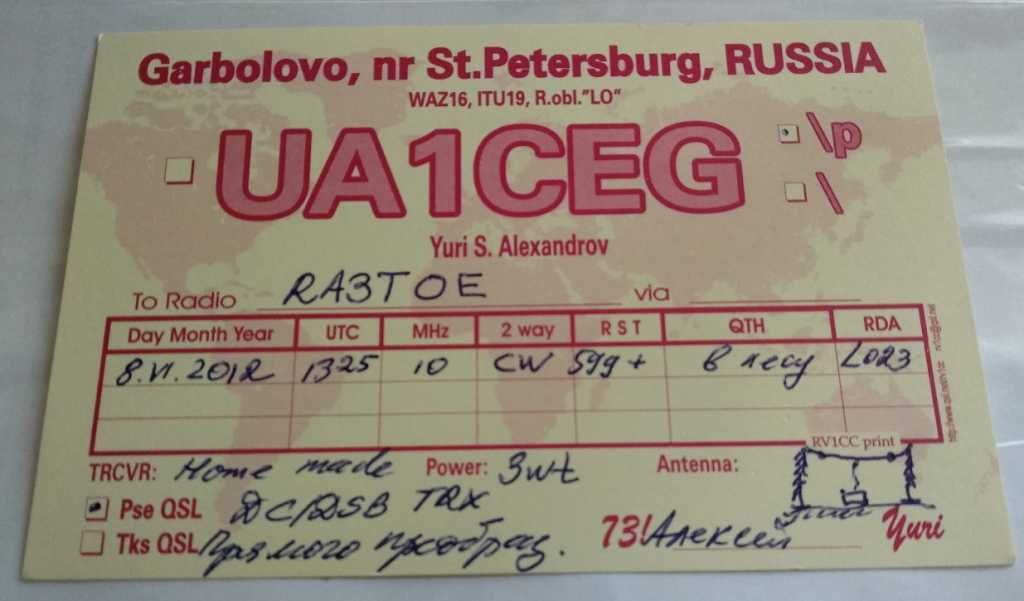 Garbolovo, nr St.Petersburg, RUSSIA
WAZ16, ITU19, R.obl."LO"
UA1CEG \p
\
Yuri S. Alexandrov
To Radio RA3TOE via
Day Month Year UTC MHz 2 way R S T QTH RDA
8.VI.2012 1325 10 CW 599+ в лесу LO23
RV1CC print
TRCVR: Home made Power: 3wt Antenna:
Pse QSL DC/DSB TRX
Tks QSL Прямого преобраз. 73! Алексей Yuri